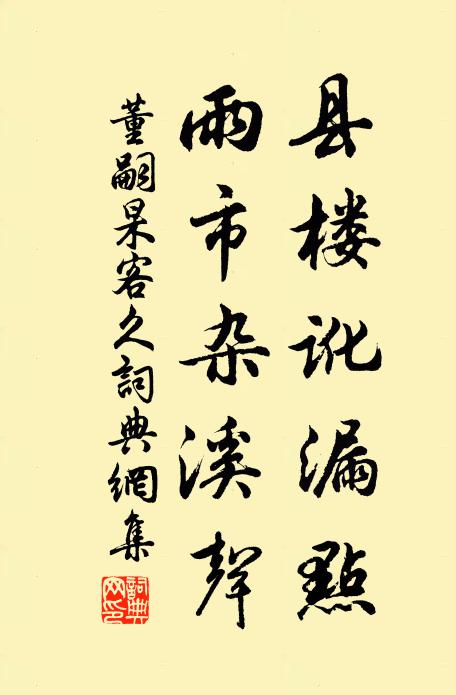 县楼讹漏點
雨市杂溪聲
董嗣杲客久詞典網集
詞典網印